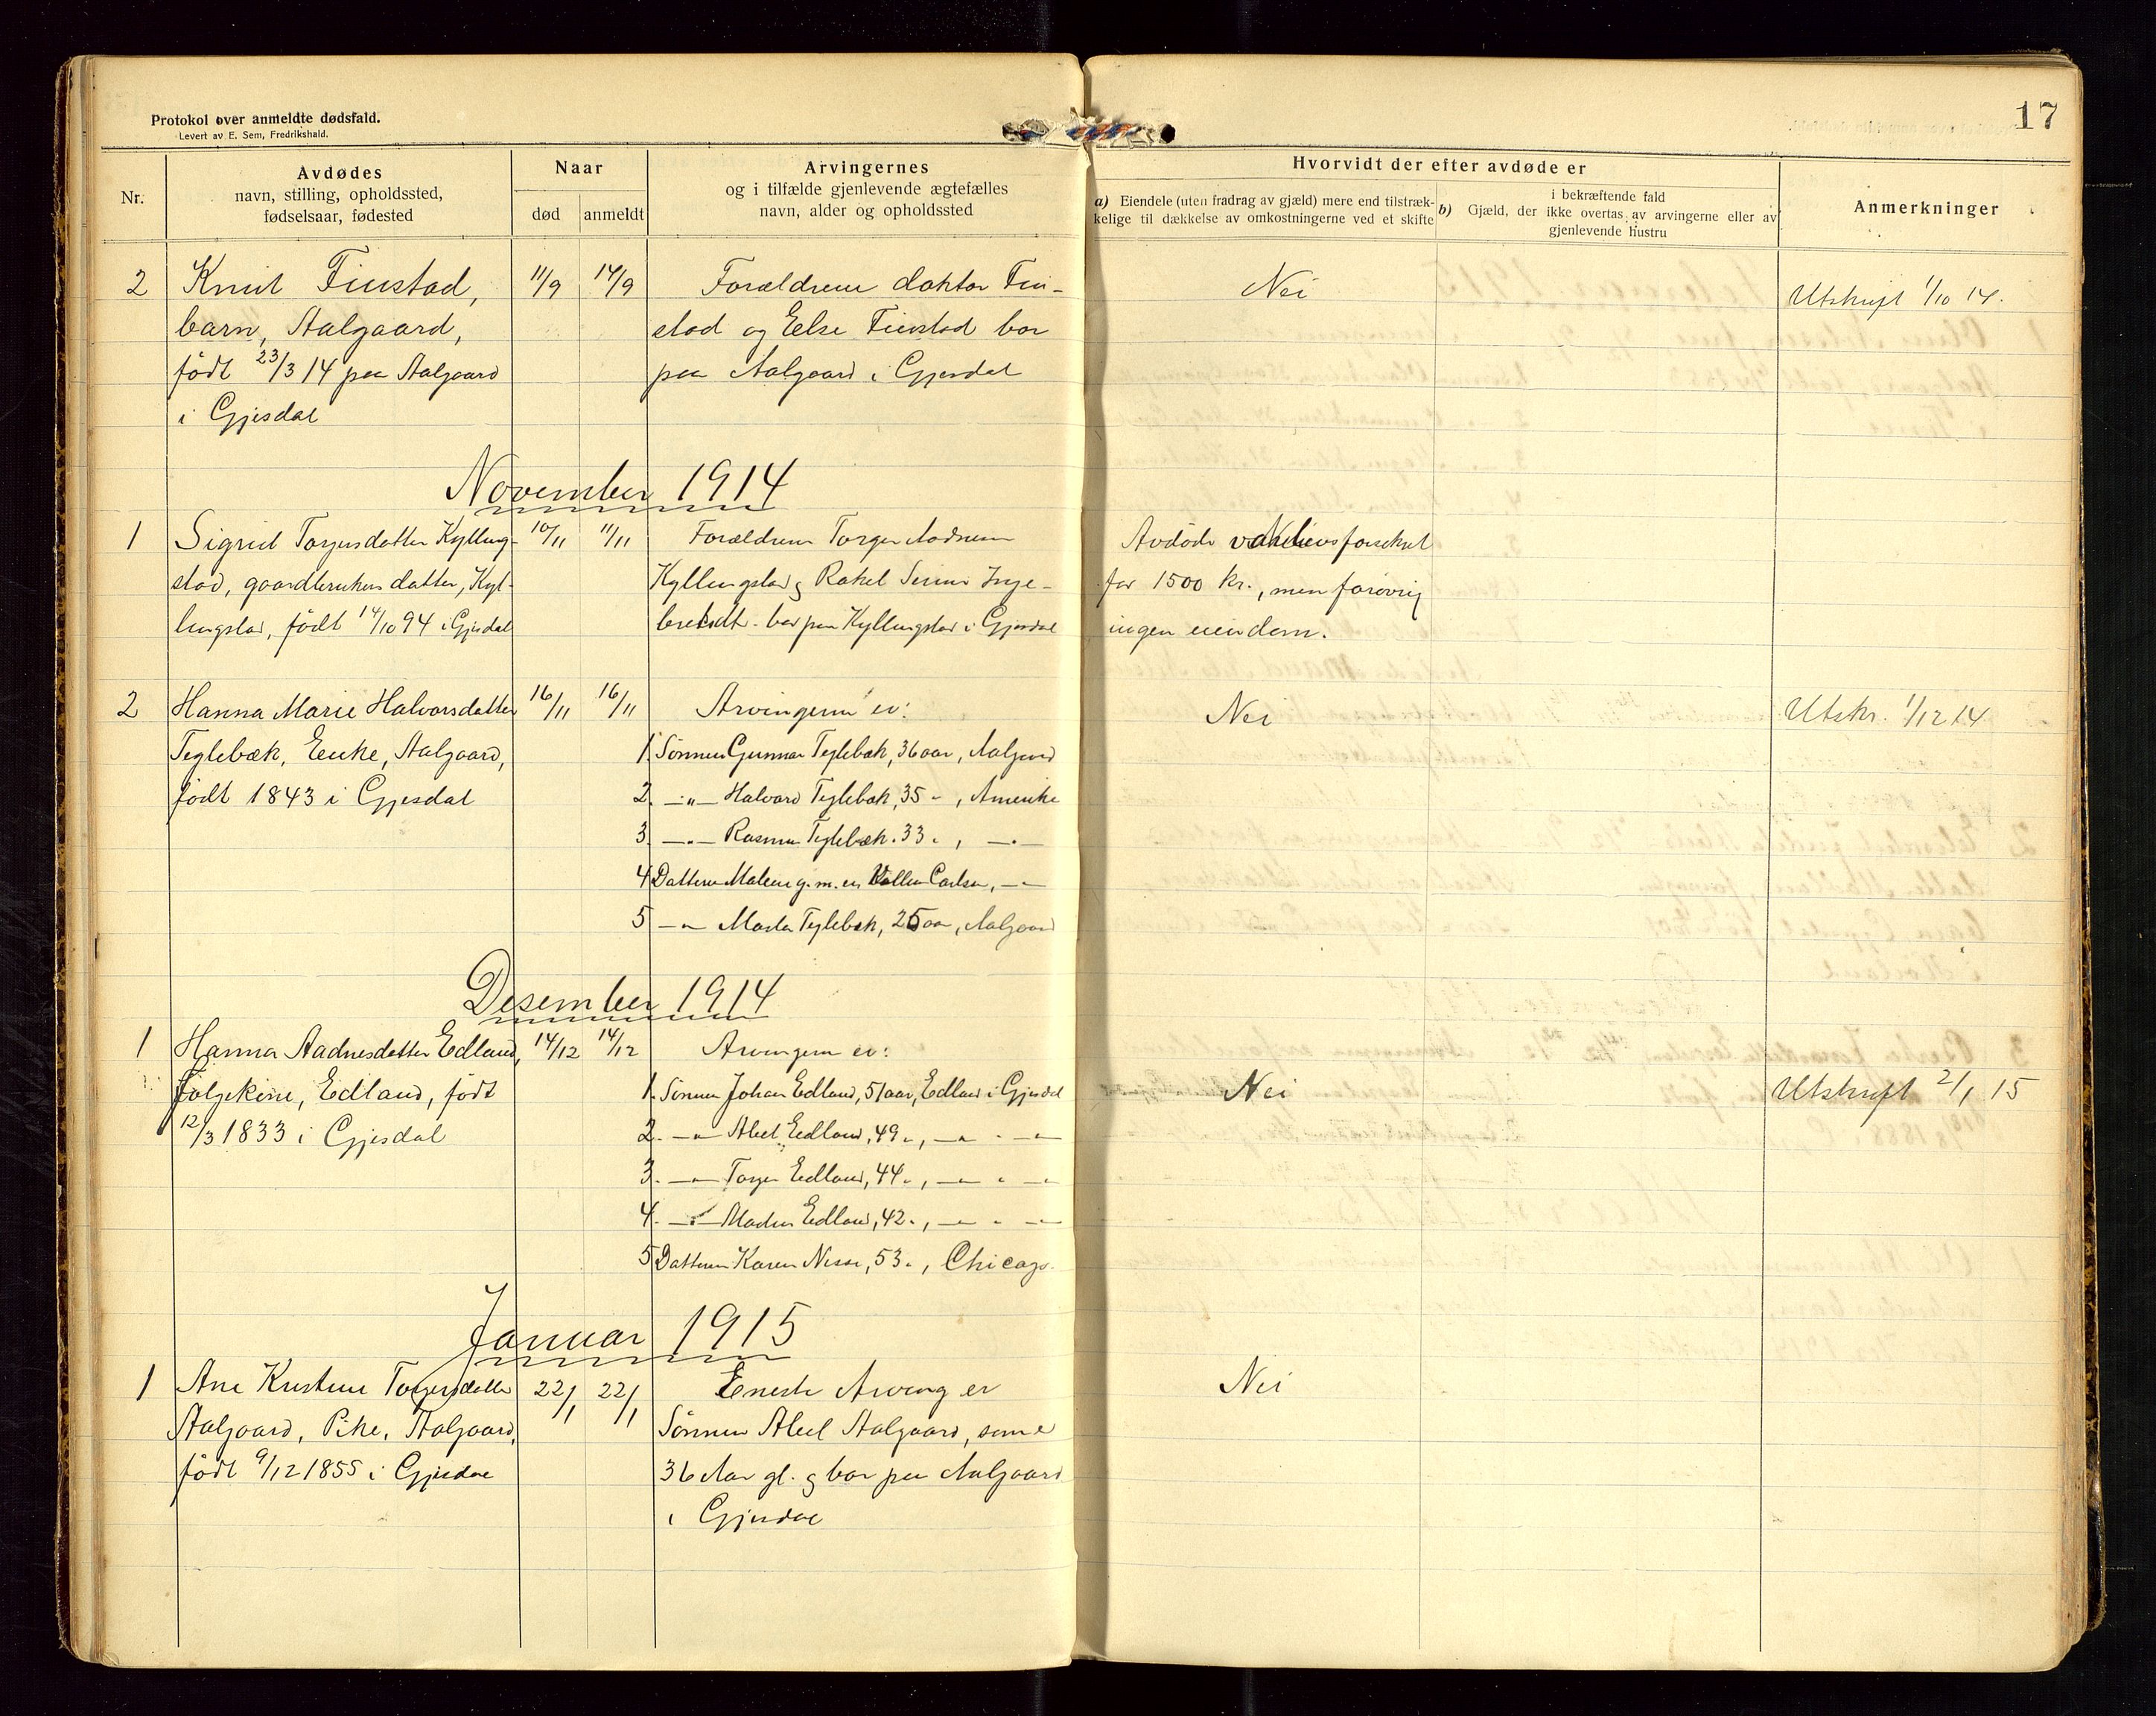 Protokol over anmeldte dødsfald.
Levert av E. Sem, Fredrikshald.
17
Nr.
Avdødes
navn, stilling, opholdssted,
fødselsaar, fødested
Naar
død
anmeldt
Arvingernes
og i tilfælde gjenlevende ægtefælles
navn, alder og opholdssted
Hvorvidt der efter avdøde er
a) Eiendele (uten fradrag av gjæld) mere end tilstræk-
kelige til dækkelse av omkostningerne ved et skifte
i bekræftende fald
b) Gjæld, der ikke overtas av arvingerne eller av
gjenlevende hustru
Anmerkninger
2 Knut Finstad, 11/9 14/9 Forældrene doktor Fin- Nei Utskrift 1/10 14.
barn, Aalgaard, stad og Else Finstad bor
født 23/3 14 paa Aalgaard paa Aalgaard i Gjesdal
i Gjesdal
November 1914
1 Sigrid Torgersdatter Kylling- 10/11 11/11 Forældrene Torger Aadnesen Avdøde var livsforsikret
stad, gaardbrukers datter, Kyl- Kyllingstad og Rakel Serine Inge- for 1500 kr., men forøvrig
lingstad, født 14/10 94 i Gjesdal bor paa Kyllingstad i Gjesdal ingen eiendom.
2 Hanna Marie Halvorsdatter 16/11 16/11 Arvingerne er: Nei Utskr. 1/12 14
Teglebæk, Enke, Aalgaard, 1. Sønnen Gunnar Teglebæk, 36 aar, Aalgaard
født 1843 i Gjesdal 2. —„— Halvard Teglebæk, 35 „ , Amerika
3. —„— Rasmus Teglebæk. 33 „ , —„—
4 Datteren Malene g. m. en Carlsen, —„—
5 —„— Marta Teglebæk, 25 aar, Aalgaard
Desember 1914
1 Hanna Aadnesdatter Edland, 14/12 14/12 Arvingerne er:
Følgekone, Edland, født 1. Sønnen Johan Edland, 51 aar, Edland i Gjesdal Nei Utskrift 2/1 15
12/3 1833 i Gjesdal 2. —„— Abel Edland, 49 „, —„— „ —„—
3. —„— Torger Edland, 44 „, —„— „ —„—
4. —„— Edland, 42 „, —„— „ —„—
5 Datteren Karen Nesse, 53 „, Chicago.
Januar 1915
1 Ane Kristine Torgersdatter 22/1 22/1 Eneste Arving er Nei
Aalgaard, Pike, Aalgaard, Sønnen Abel Aalgaard, som er
født 9/12 1855 i Gjesdal 36 Aar gl. og bor paa Aalgaard
i Gjesdal